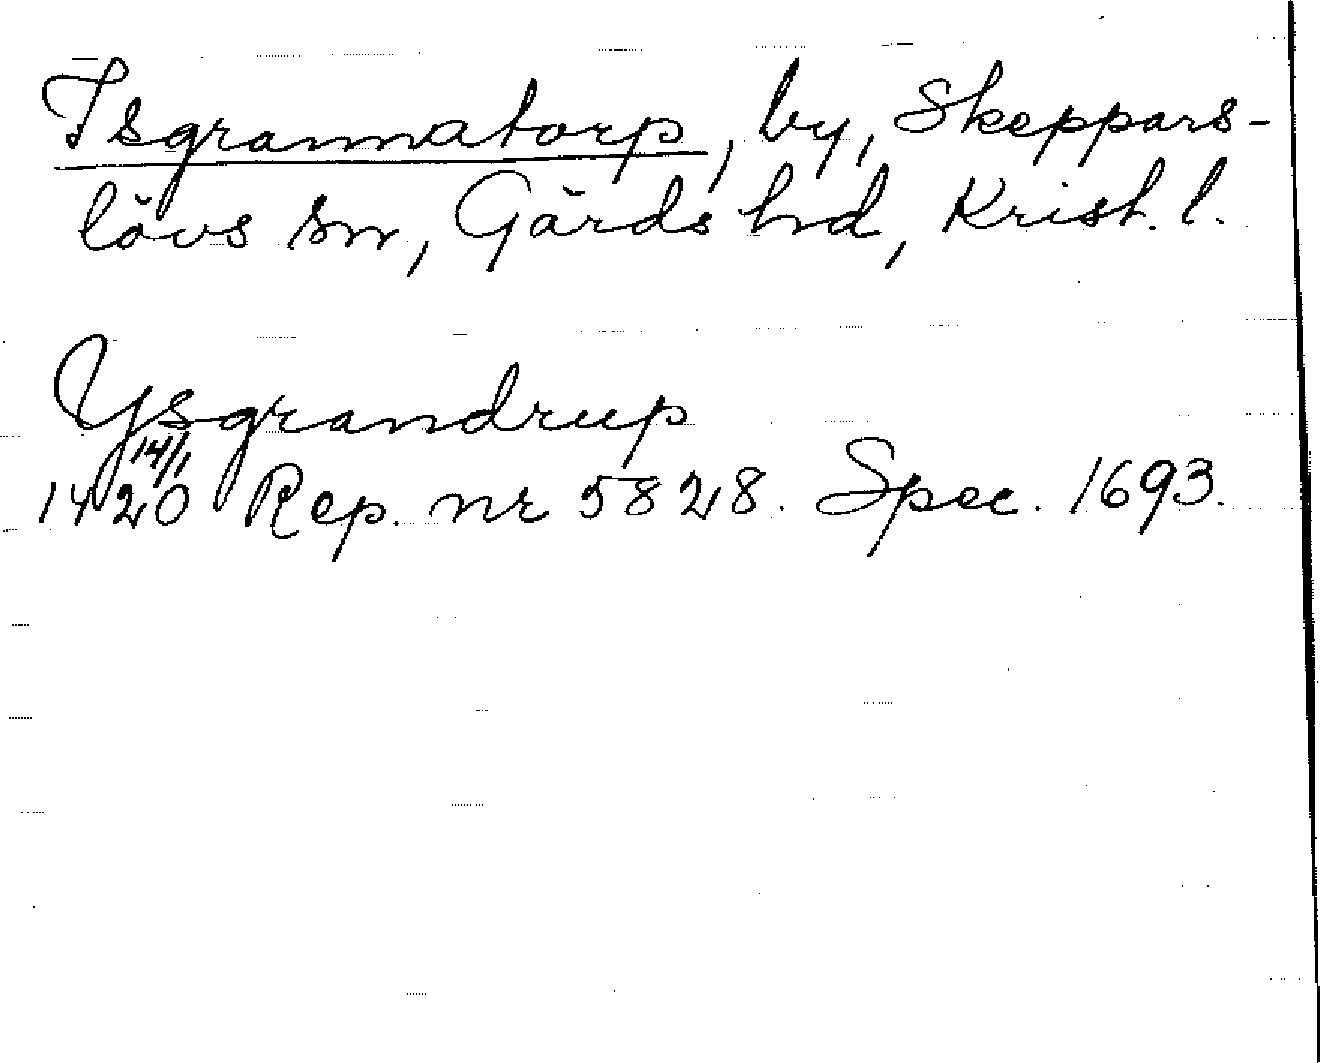 Isgrannatorp, by, Skeppars-
lövs sn, Gärds hd, Krist. l.
Ysgrandrup
14/1
1420 Rep. nr 5828. Spec. 1693.